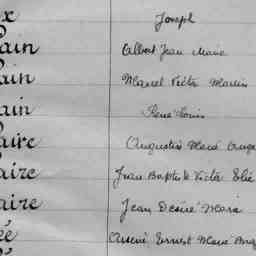 x Joseph
ain Albert Jean Marie
ain Marcel Victor Martin
ain René Louis
aire Augustin Marie
aire Jean Baptiste Victor Elie
aire Jean Désiré Marie
ée Arsène Ernest Marie